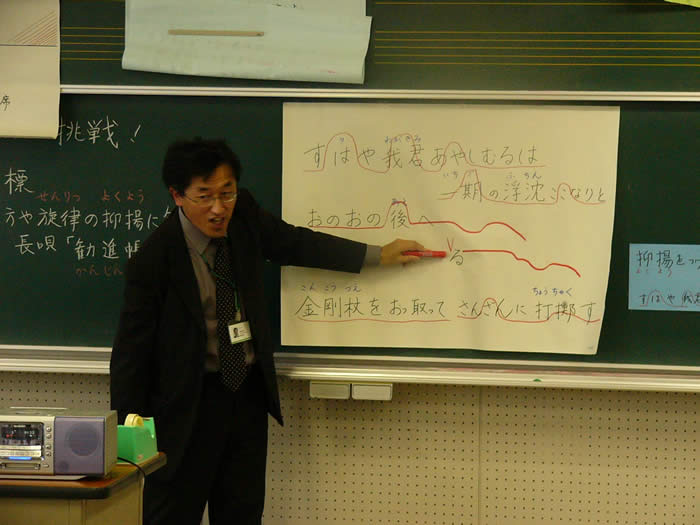 挑戦!
標
せんりつ よくよう
方や旋律の抑揚に
長唄「勧進帳
かんじん
わがきみ
すはや我君あやしむるは
いち ふちん
一期の浮沈こゝなりと
おのおの後へ
る
こんごうづえ ちょうちゃく
金剛杖をおっ取って さんざんに打擲す
抑揚をつ
よくよう
すはや 我君